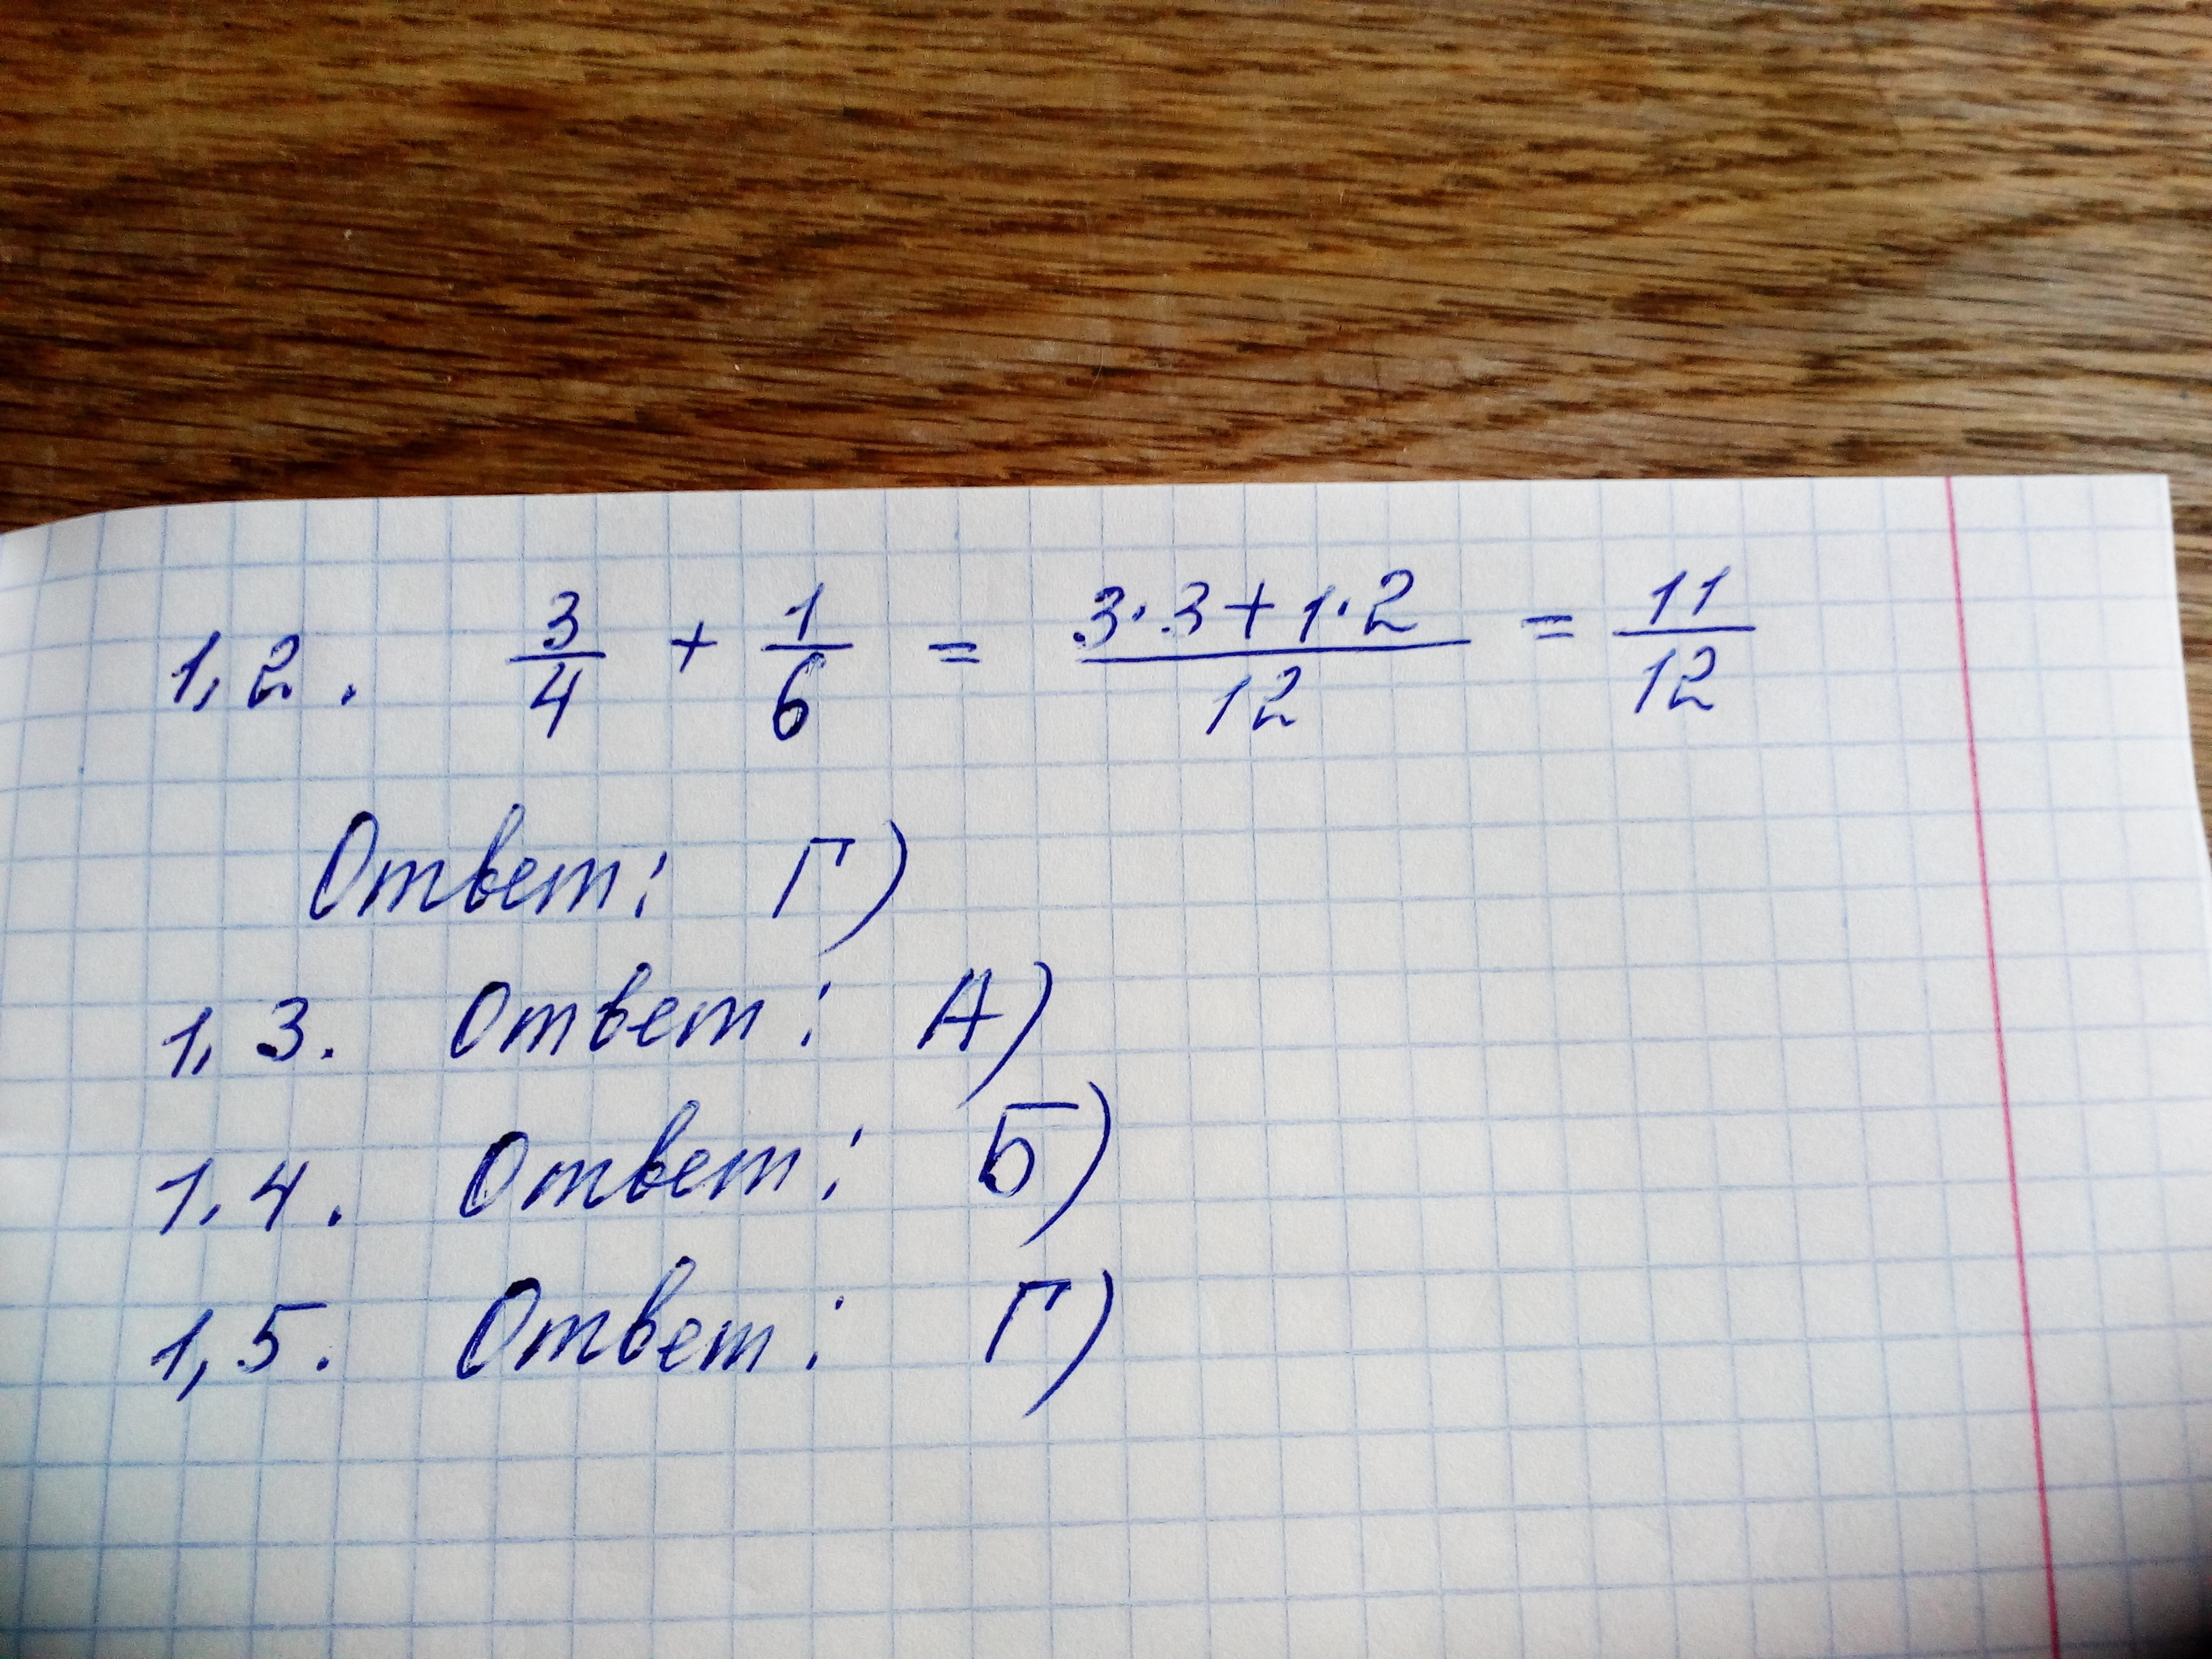 1,2. 3/4 + 1/6 = 3·3+1·2/12 = 11/12
Ответ: Г)
1,3. Ответ: А)
1,4. Ответ: Б)
1,5. Ответ: Г)